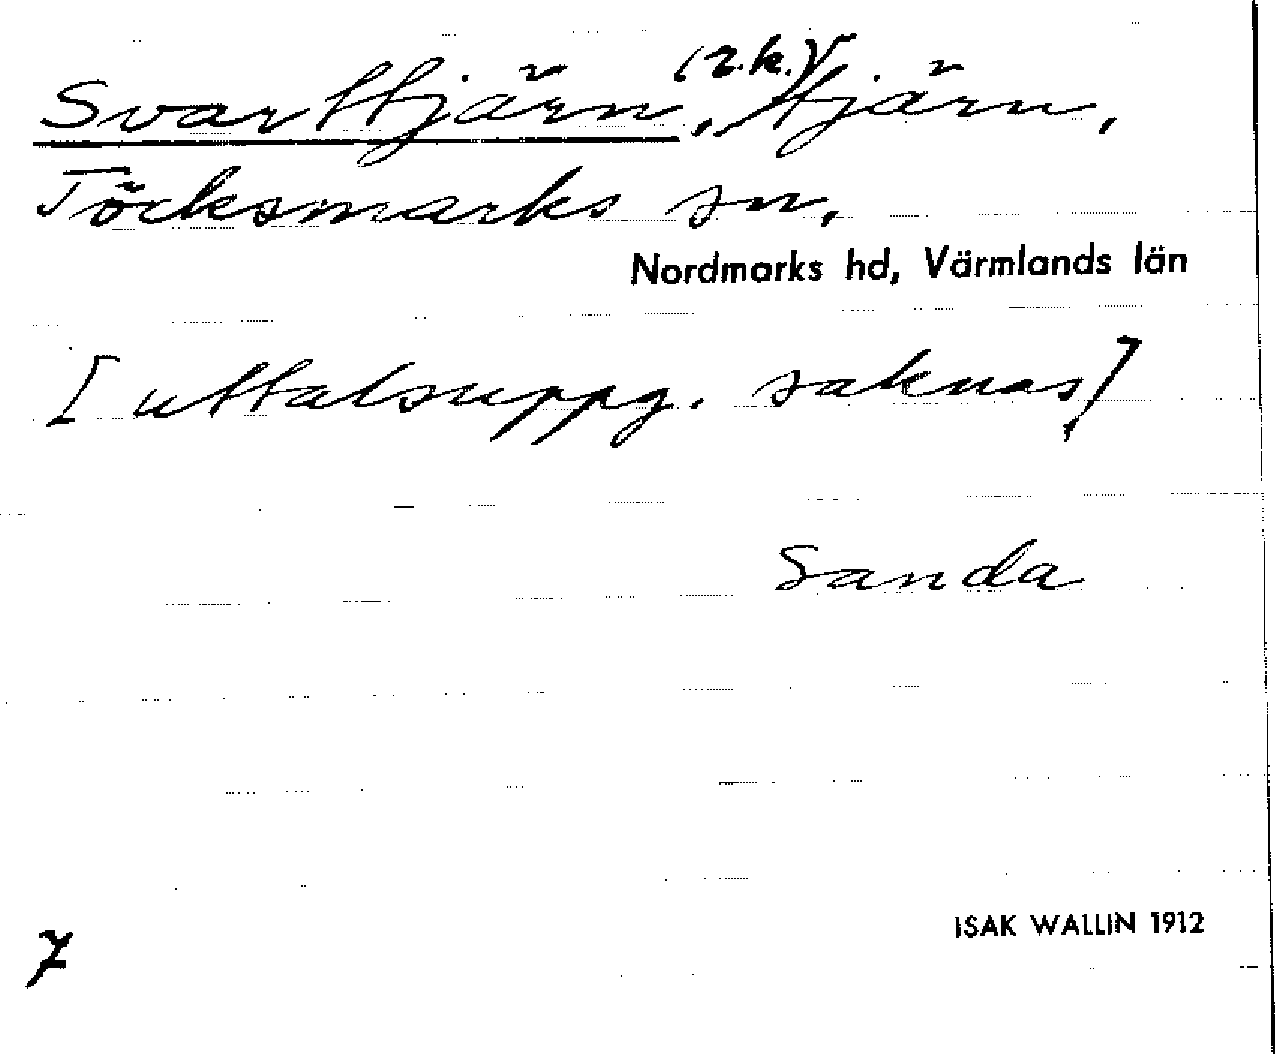 Svarttjärn, (2.k.) tjärn,
Töcksmarks sn,
Nordmarks hd, Värmlands län
[uttalsuppg. saknas]
Sanda
ISAK WALLIN 1912
7